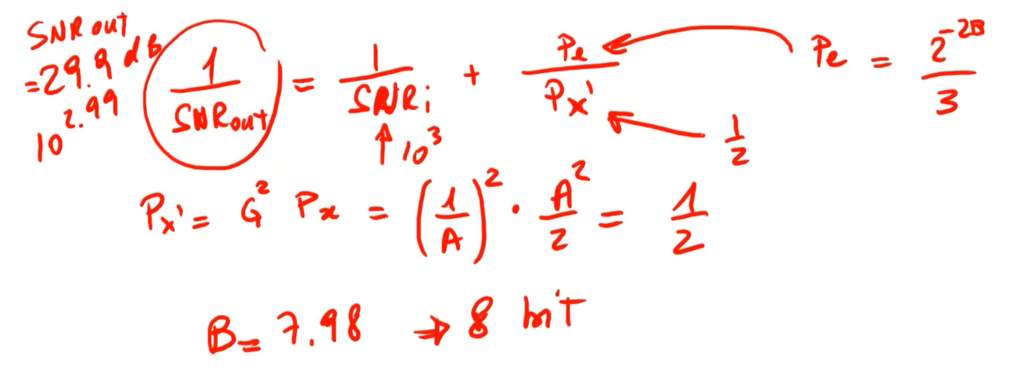 SNR out = 29.9 dB 10^2.99
1/SNRout = 1/SNRi + Pe/Px'
Pe = 2^-2B/3
↑ 10^3
1/2
Px' = G^2 Px = (1/A)^2 · A^2/2 = 1/2
B = 7.98 ⇒ 8 bit